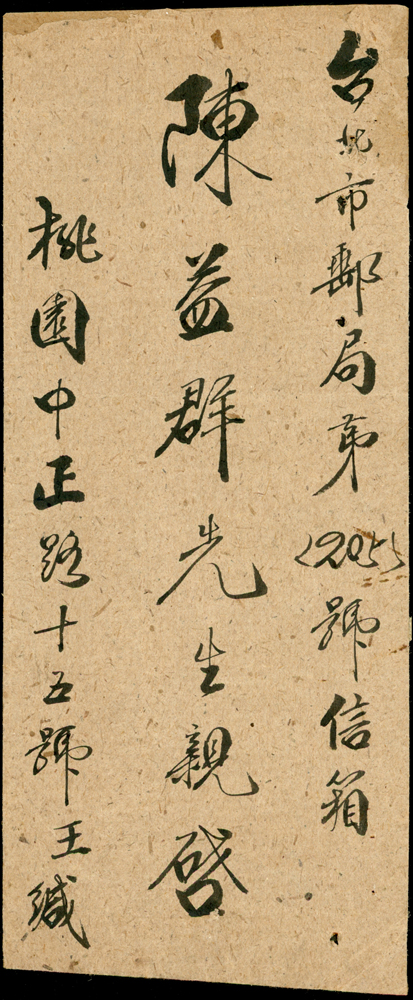 台北市郵局第(205)號信箱
陳益群先生親啓
桃園中正路十五號王緘